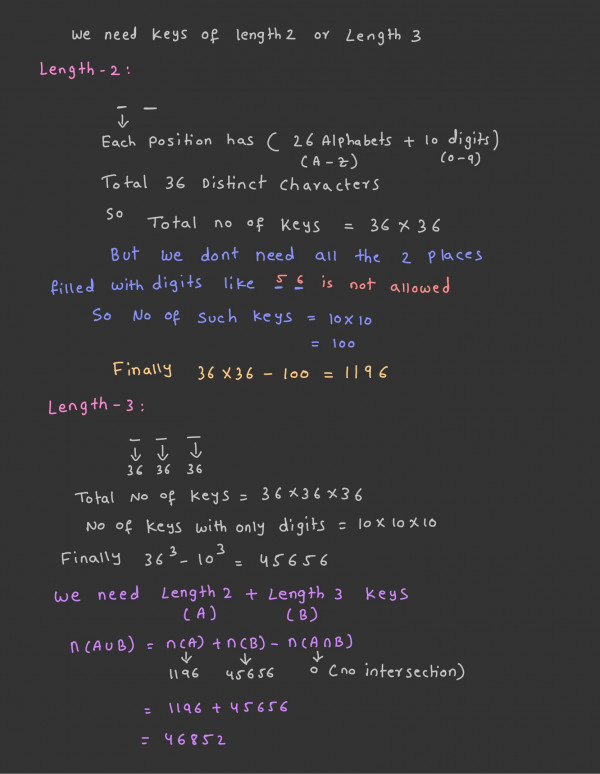 we need keys of length 2 or Length 3
Length - 2 :
Each position has ( 26 Alphabets + 10 digits)
(A - Z) (0-9)
Total 36 Distinct characters
So Total no of keys = 36 × 36
But we dont need all the 2 places
filled with digits like 5 6 is not allowed
So No of such keys = 10×10
= 100
Finally 36 × 36 - 100 = 1196
Length - 3 :
36 36 36
Total No of keys = 36 × 36 × 36
No of keys with only digits = 10 × 10 × 10
Finally 36³ - 10³ = 45656
we need Length 2 + Length 3 keys
(A) (B)
n(A∪B) = n(A) + n(B) - n(A∩B)
1196 45656 0 (no intersection)
= 1196 + 45656
= 46852